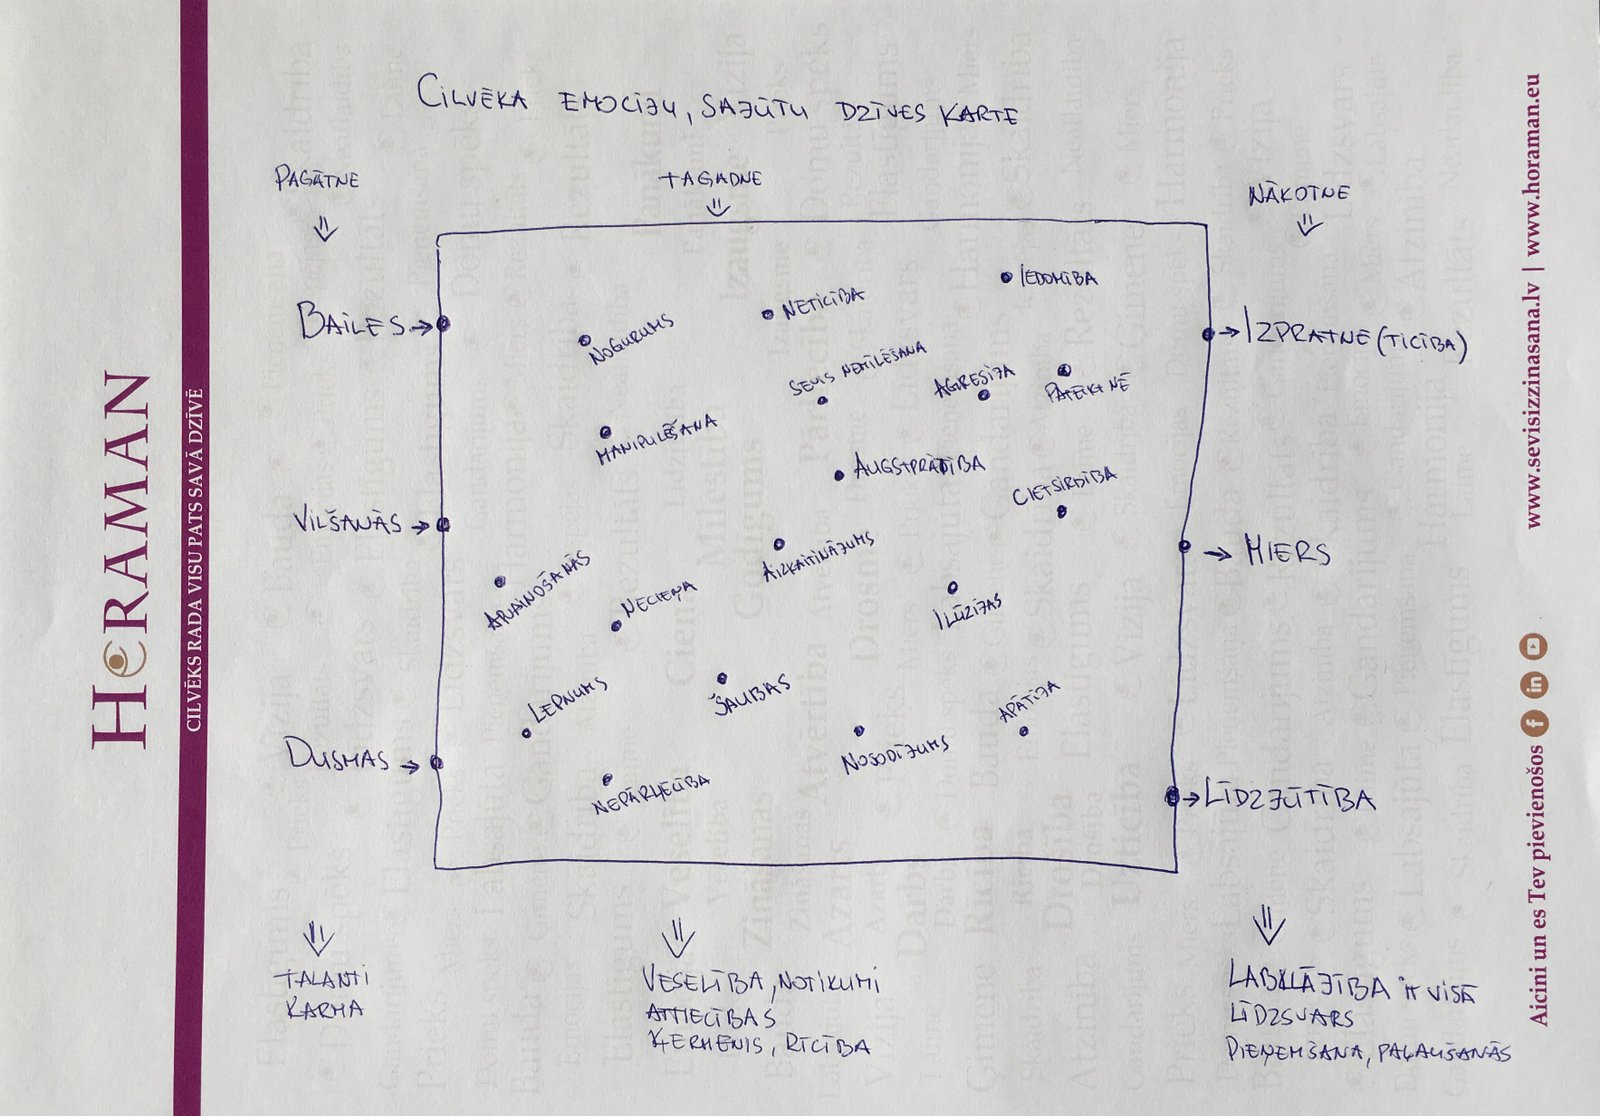 CILVĒKA EMOCIJU, SAJŪTU DZĪVES KARTE
PAGĀTNE
TAGADNE
NĀKOTNE
BAILES
VILŠANĀS
DUSMAS
IEDOMĪBA
NETICĪBA
NOGURUMS
SEVIS NEMĪLĒŠANA
AGRESIJA
PATEIKT NĒ
MANIPULĒŠANA
AUGSTPRĀTĪBA
CIETSIRDĪBA
AIZKAITINĀJUMS
APVAINOŠANĀS
NECIEŅA
ILŪZIJAS
LEPNUMS
ŠAUBAS
APĀTIJA
NOSODĪJUMS
NEPĀRLIECĪBA
IZPRATNE (TICĪBA)
MIERS
LĪDZJŪTĪBA
TALANTI
KARMA
VESELĪBA, NOTIKUMI
ATTIECĪBAS
ĶERMENIS, RĪCĪBA
LABKLĀJĪBA it VISĀ
LĪDZSVARS
PIEŅEMŠANA, PAĻAUŠANĀS
HORAMAN
CILVĒKS RADA VISU PATS SAVĀ DZĪVĒ
www.sevisizzinasana.lv | www.horaman.eu
Aicini un es Tev pievienošos